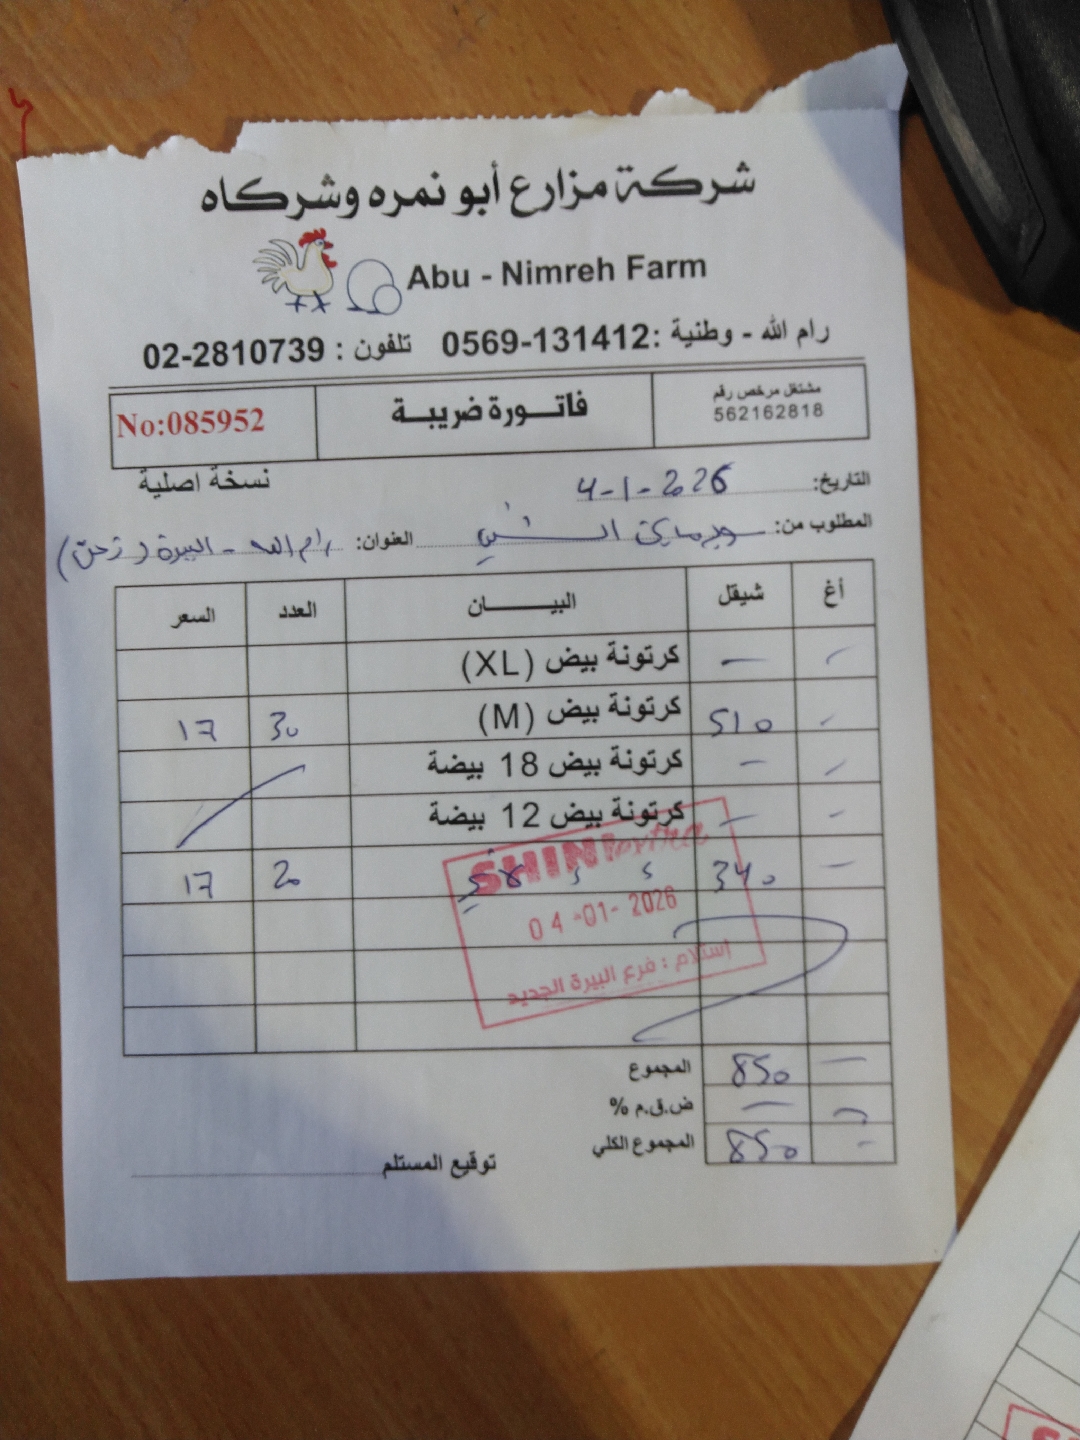 شركة مزارع أبو نمره وشركاه
Abu - Nimreh Farm
رام الله - وطنية :0569-131412 تلفون : 02-2810739
مشتغل مرخص رقم
562162818
فاتورة ضريبة
No:085952
نسخة اصلية
التاريخ: 4-1-2026
المطلوب من: سوبرماركت الشيني العنوان: رام الله - البيرة
أغ شيقل البيـــان العدد السعر
- - كرتونة بيض (XL)
- 510 كرتونة بيض (M) 30 17
- - كرتونة بيض 18 بيضة
- - كرتونة بيض 12 بيضة
- 340 20 17
SHINI extra
04-01-2026
استلام : فرع البيرة الجديد
المجموع 850 -
ض.ق.م % -
المجموع الكلي 850 -
توقيع المستلم